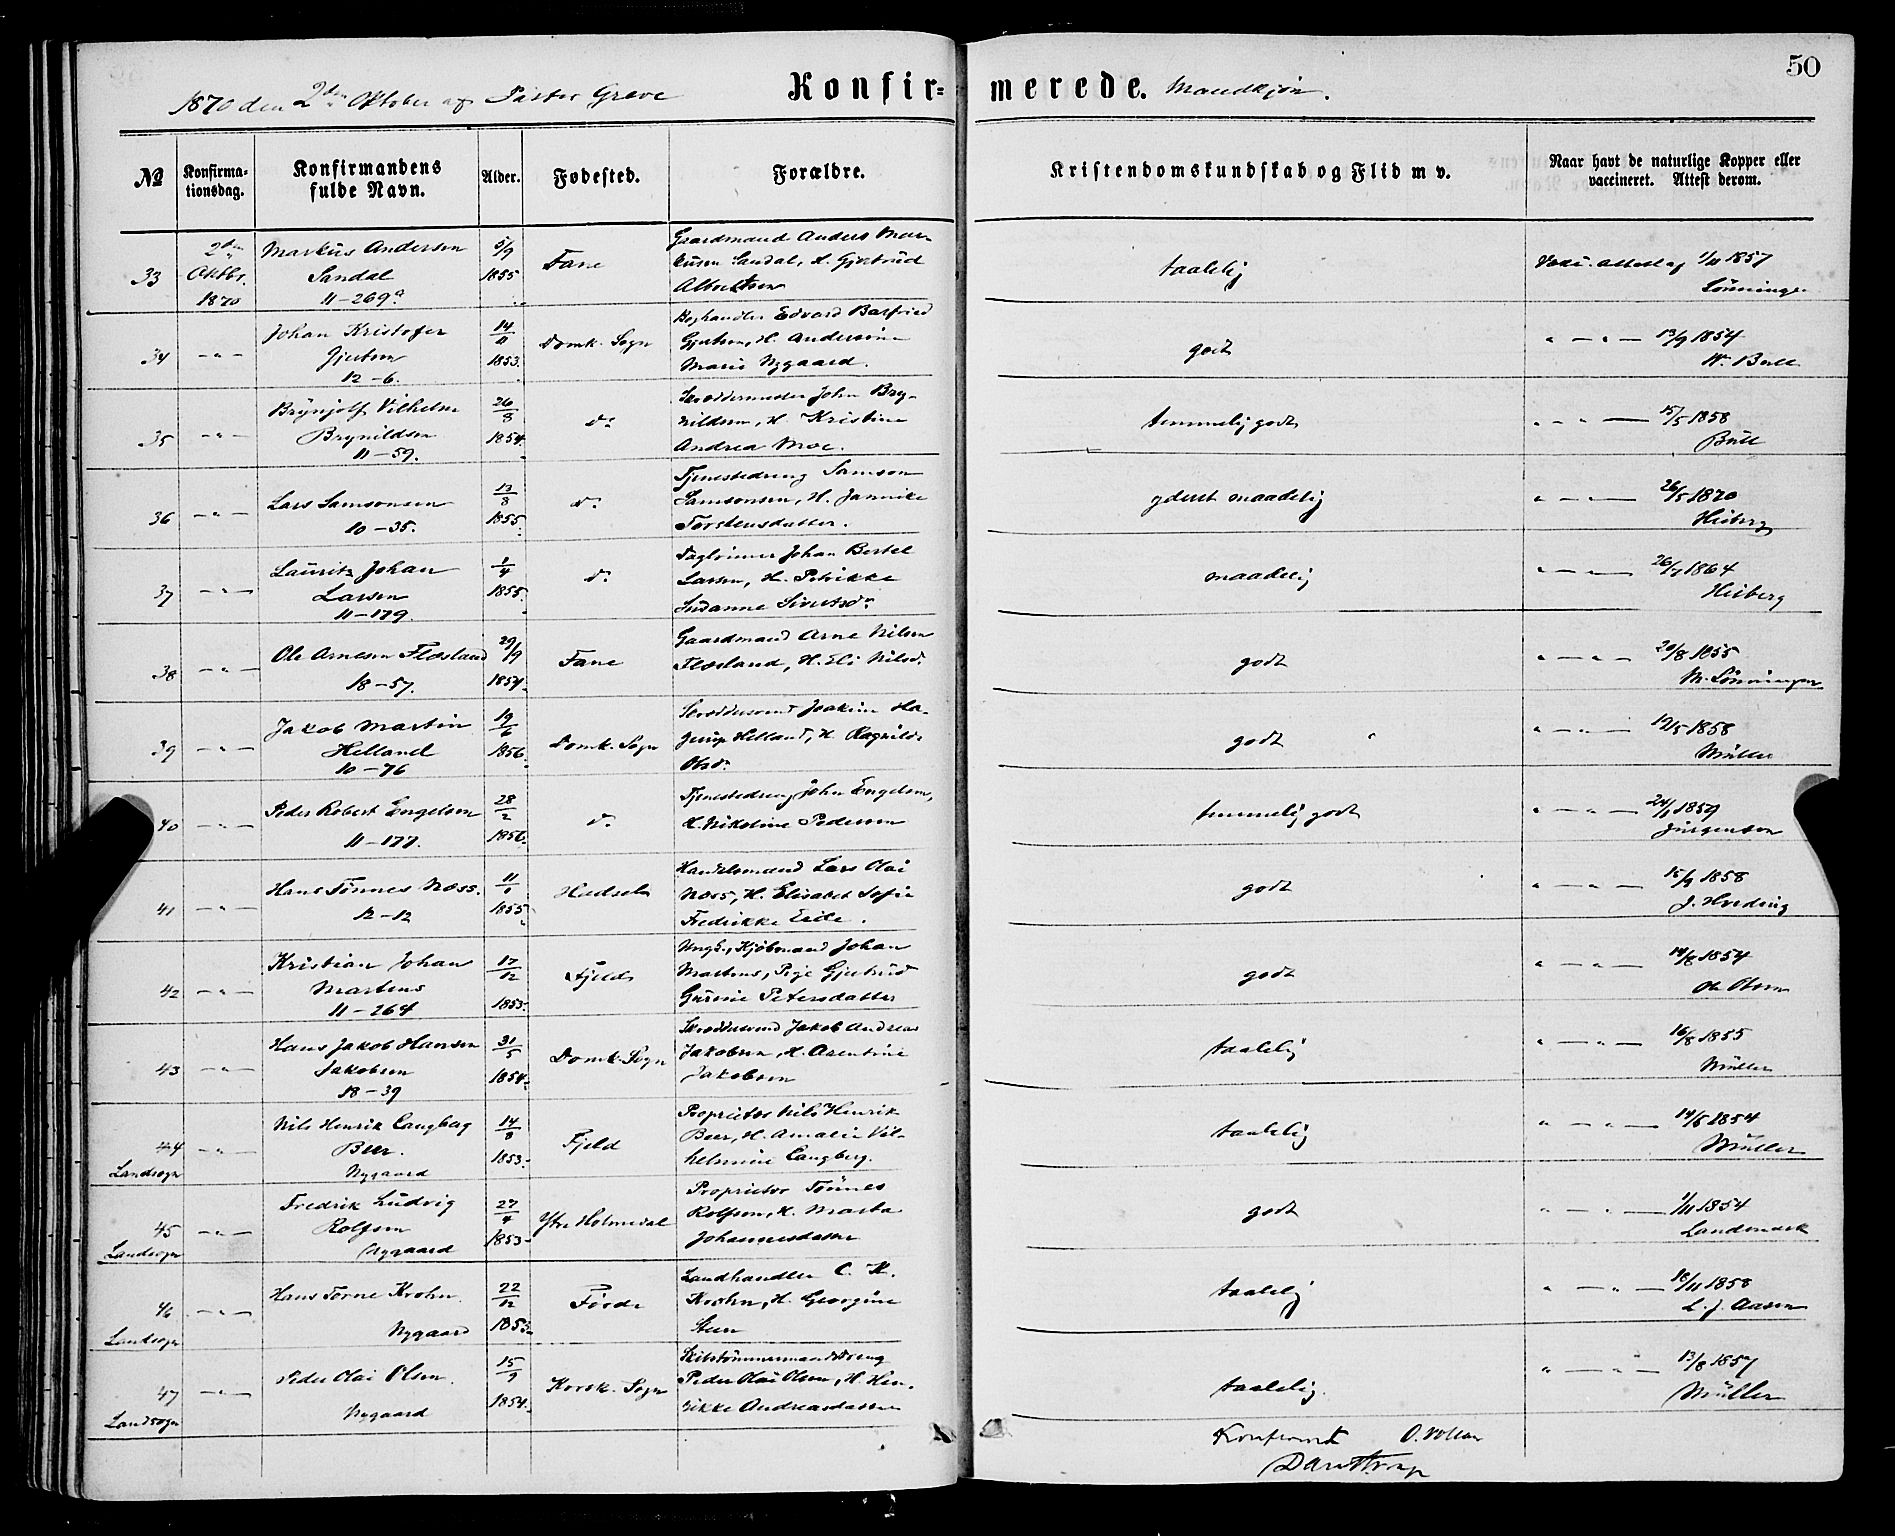 50
1870 den 2den Oktober af Pastor Greve
Konfir= merede. Mandkjøn.
No
Konfirma-
tionsdag.
Konfirmandens
fulde Navn.
Alder.
Fødested.
Forældre.
Kristendomskundskab og Flid m v.
Naar havt de naturlige Kopper eller
vaccineret. Attest derom.
33
2den
Oktbr.
1870
Markus Andersen
Sandal
11-269a
5/9
1855
Fane
Gaardmand Anders Mar-
kusen Sandal, H. Gjertrud
taalelig
Vakc. attest af 1/11 1857
Lönningen
34
Johan Kristofer
Gjertsen
12-6.
14/11
1853.
Domk. Sogn
Boghandler Edvard Barfried
Gjertsen, H. Andersine
Marie Nygaard.
godt
" — " — 13/9 1854
Bull
35
Brynjolf Vilhelm
Brynildsen
11-59.
26/8
1854.
do
Skræddermester John Bry-
nildsen, H. Kristine
Andrea Moe.
temmelig godt
" — " — 15/5 1858
Bull
36
Lars Samsonsen
10-35.
13/8
1855.
do
Tjenestedreng Samson
Samsonsen, H. Jannike
Torstensdatter.
yderst maadelig
" — " — 26/5 1870
Heiberg
37
Lauritz Johan
Larsen
11-179.
1/4
1855.
do
Dagleiner Johan Bertel
Larsen, H. Petrikke
Susanne Sivertsdr
maadelig
" — " — 26/7 1864
Heiberg
38
Ole Arnesen Flæsland
18-57.
29/9
1854.
Fane
Gaardmand Arne Nilsen
Flæsland, H. Eli Nilsd.
godt
" — " — 20/8 1855
M. Lönningen
39
Jakob Martin
Helland
10-76
19/6
1856.
Domk. Sogn
Skræddersvend Joakim Ha-
gerup Helland, H. Ragnilde
Olsdr
godt
" — " — 19/5 1858
Müller
40
Peder Robert Engelsen
11-177.
28/2
1856.
do
Tjenestedreng John Engelsen,
H. Nikoline Pedersen
temmelig godt
" — " — 24/1 1859
Jürgenson
41
Hans Tönnes Næss.
12-12
1855.
Hadsel
Handelsmand Lars Olai
Næss, H. Elisabet Sofie
Fredrikke
godt
" — " — 15/9 1858
J. Hveding
42
Kristian Johan
Martens
11-264
17/12
1853.
Fjeld
Ungk., Kjöbmand Johan
Martens, Pige Gjertrud
Gurine Petersdatter
godt
" — " — 14/8 1854
Ole Olsen
43
Hans Jakob Hansen
Jakobsen
18-39
31/5
1854.
Domk. Sogn
Skræddersvend Jakob Andreas
Jakobsen, H. Arentine
Jakobsen
taalelig
" — " — 16/8 1855
Müller
44
Landsogn
Nils Henrik Langberg
Beer.
Nygaard
14/8
1853.
Fjeld
Proprietær Nils Henrik
Beer, H. Amalie Vil-
helmine Langberg.
taalelig
" — " — 14/6 1854
Müller
45
Landsogn
Fredrik Ludvig
Rolfsen
Nygaard
27/4
1853.
Ytre Holmedal
Proprietær Tönnes
Rolfsen, H. Marta
Johannesdatter
godt
" — " — 1/11 1854
Landmark
46
Landsogn
Hans Törne Krohn.
Nygaard
22/12
1853.
Förde
Landhandler C. K.
Krohn, H. Georgine
Steen
taalelig
" — " — 18/11 1858
L. J. Aasen
47
Landsogn
Peder Olai Olsen.
Nygaard
15/9
1854.
Korsk. Sogn
Skibstömmermandsdreng
Peder Olai Olsen, H. Hen-
rikke Andreasdatter
taalelig.
" — " — 13/8 1857
Müller
Konfirmeret